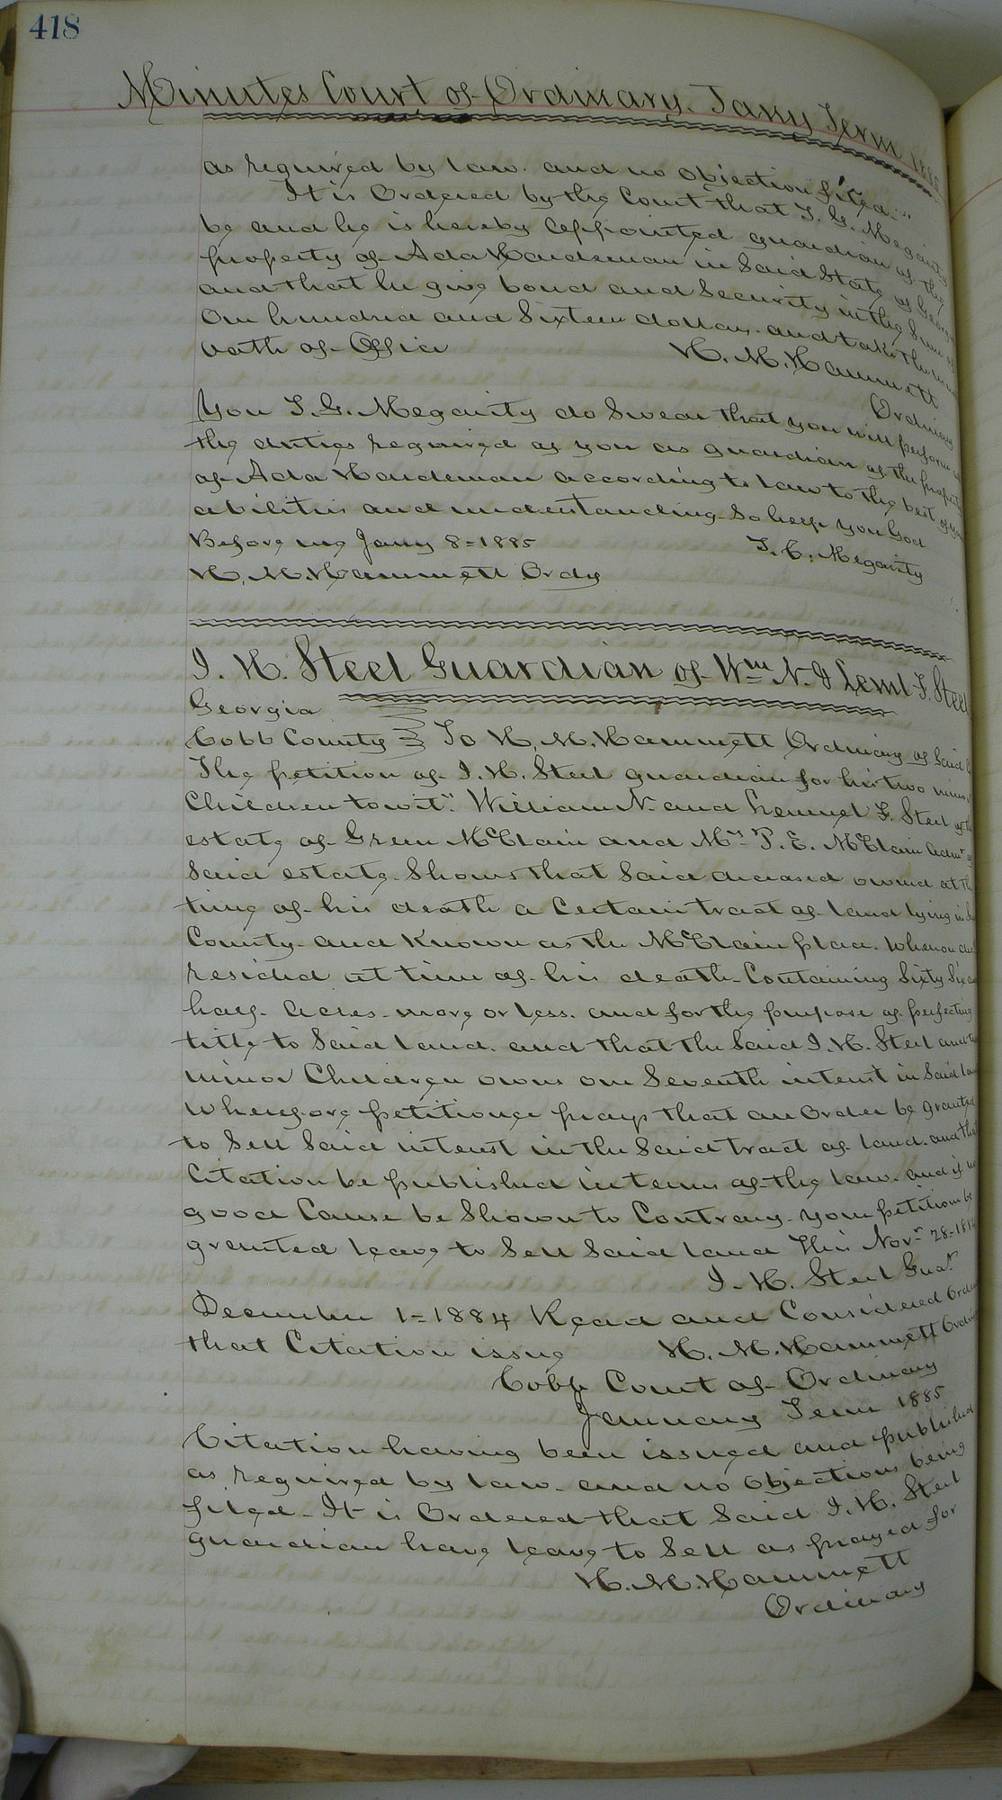 418
Minutes Court of Ordinary. Jany Term 1885
as required by law. and no objection filed."
It is Ordered by the Court that T. G. Megarity
be and he is hereby appointed guardian of the
property of Ada Hardeman in Said State of Georgia
and that he give bond and Security in the Sum of
One hundred and Sixteen dollars. and take the
oath of Office H. M. Hammett
Ordinary
You T. G. Megarity do Swear that you will perform
the duties required of you as guardian of the property
of Ada Hardeman according to law to the best of your
abilities and understanding So help you God
Before me Jany 8=1885 T. G. Megarity
H. M. Hammett Ordy
I. H. Steel Guardian of Wm N. & Leml F. Steel
Georgia
Cobb County To H. M. Hammett Ordinary of Said
The petition of I. H. Steel guardian for his two minor
Children towit" William N. and Lemuel F. Steel of the
estate of Green McClain and Mrs P. E. McClain Admr of
Said estate. Shows that Said deceased owned at the
time of his death a Certain tract of land lying in
County. and Known as the McClain place. Whereon
resided at time of his death. Containing Sixty Six
half Acres. more or less. and for the purpose of perfecting
title to Said land. and that the Said I. H. Steel and
minor Children owns one Seventh intrest in Said
Wherefore petitioner prays that an Order be granted
to Sell Said interest in the Said tract of land. and that
Citation be published in terms of the law. and if no
good Cause be Shown to Contrary. your petitioner be
granted leave to Sell Said land This Novr 28=
I. H. Steel Guar
December 1=1884 Read and Considered Ordered
that Citation issue H. M. Hammett Ordinary
Cobb Court of Ordinary
January Term 1885
Citation having been issued and published
as required by law. and no Objections being
filed. It is Ordered that Said I. H. Steel
guardian have leave to Sell as prayed for
H. M. Hammett
Ordinary